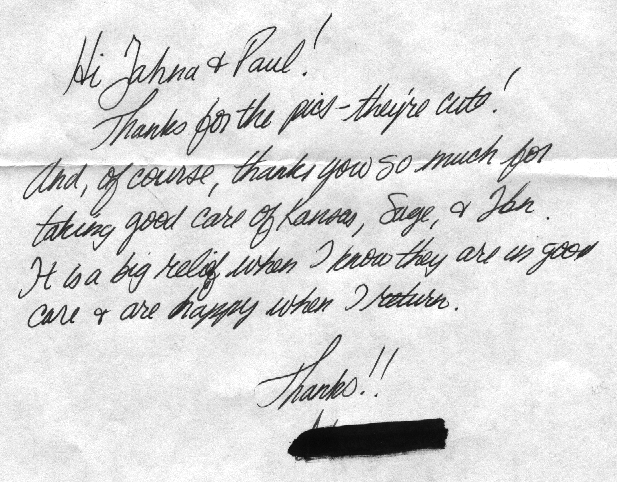 Hi Jahna & Paul!
Thanks for the pics - they're cute!
And, of course, thanks you so much for
taking good care of Kansas, Sage, &
It is a big relief when I know they are in good
care & are happy when I return.
Thanks!!